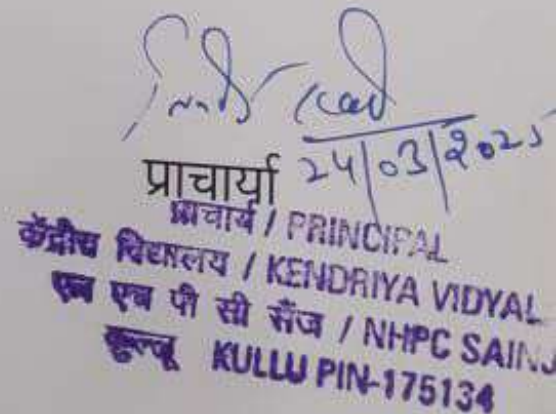 24/03/2025
प्राचार्या
प्राचार्य / PRINCIPAL
केंद्रीय विद्यालय / KENDRIYA VIDYAL
एन एच पी सी सैंज / NHPC SAINJ
कुल्लू KULLU PIN-175134